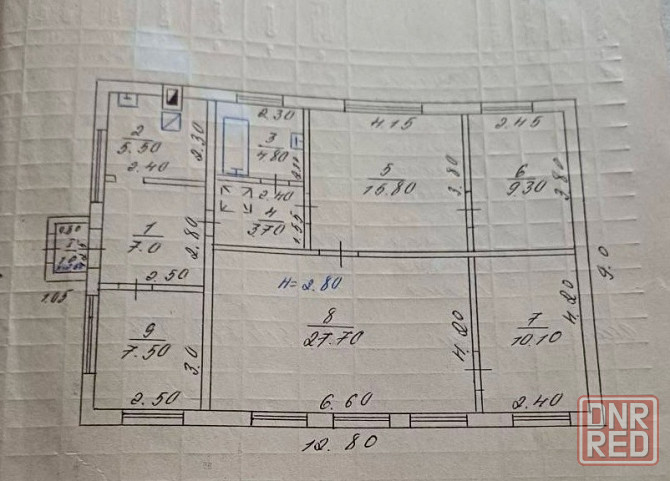 2
5.50
2.40
2.30
2.30
3
4.80
4.15
5
15.80
3.80
2.45
6
9.30
3.80
1
7.0
2.80
2.50
2.40
4
3.70
1.55
0.80
1.05
9.0
H=2.80
8
27.70
4.20
6.60
7
10.10
4.20
2.40
9
7.50
3.0
2.50
12.80
DNR
RED